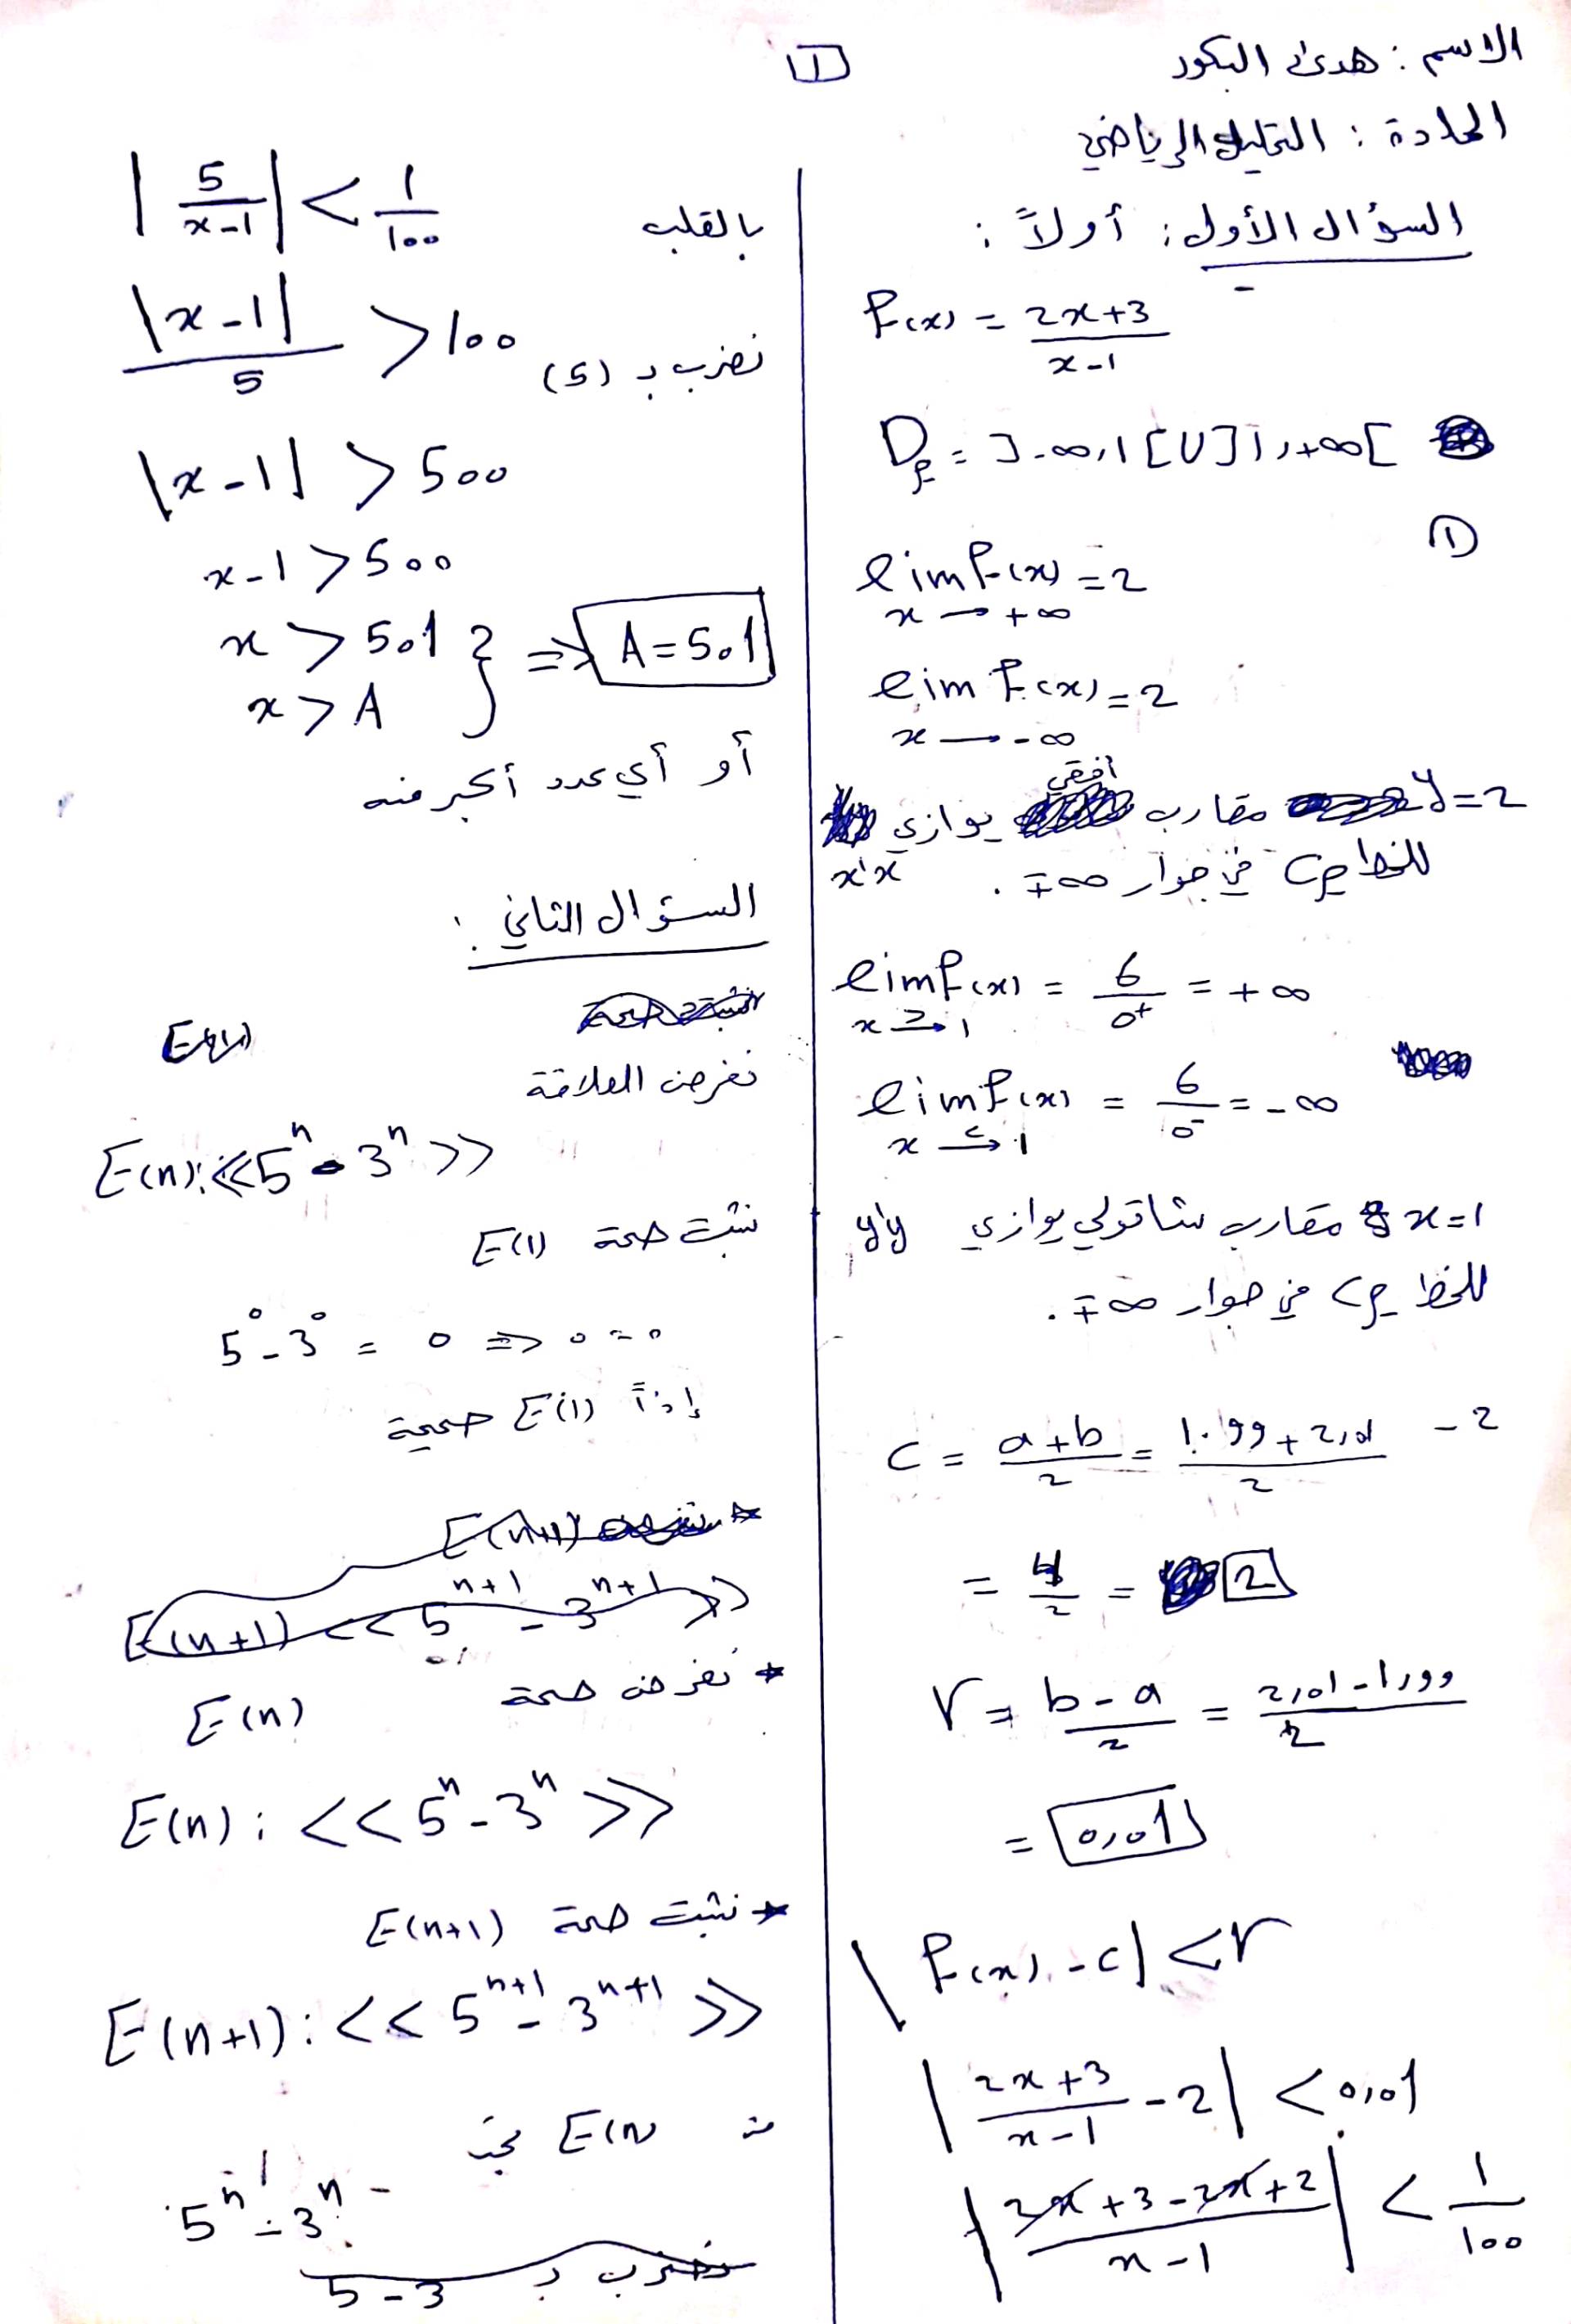 1
الاسم : هدى البكور
المادة : التحليل الرياضي
السؤال الأول : أولاً :
f(x) = (2x+3)/(x-1)
D_f = ]-∞,1[∪]1,+∞[
①
lim f(x) = 2
x → +∞
lim f(x) = 2
x → -∞
y=2 مقارب افقي يوازي
x'x للخط C_f في جوار ∓∞ .
lim f(x) = 6/0⁺ = +∞
x →> 1
lim f(x) = 6/0⁻ = -∞
x →< 1
x=1 مقارب شاقولي يوازي y'y
للخط C_f في جوار ∓∞ .
2- c = (a+b)/2 = (1.99+2,01)/2
= 4/2 = 2
r = (b-a)/2 = (2,01-1,99)/2
= 0,01
|f(x)-c| < r
|(2x+3)/(x-1) - 2| < 0,01
|(2x+3-2x+2)/(x-1)| < 1/100
|5/(x-1)| < 1/100 بالقلب
|x-1|/5 > 100 نضرب بـ (5)
|x-1| > 500
x-1 > 500
x > 501
x > A } ⇒ A=501
أو أي عدد أكبر منه
السؤال الثاني :
نفرض العلاقة
E(n): <<5ⁿ - 3ⁿ>>
نثبت صحة E(1)
5⁰ - 3⁰ = 0 ⇒ 0=0
إذاً E(1) صحيحة
E(n+1)
E(n+1) << 5ⁿ⁺¹ - 3ⁿ⁺¹ >>
* نفرض صحة E(n)
E(n) : << 5ⁿ - 3ⁿ >>
* نثبت صحة E(n+1)
E(n+1) : << 5ⁿ⁺¹ - 3ⁿ⁺¹ >>
من E(n) نجد
5ⁿ - 3ⁿ
نضرب بـ 5-3